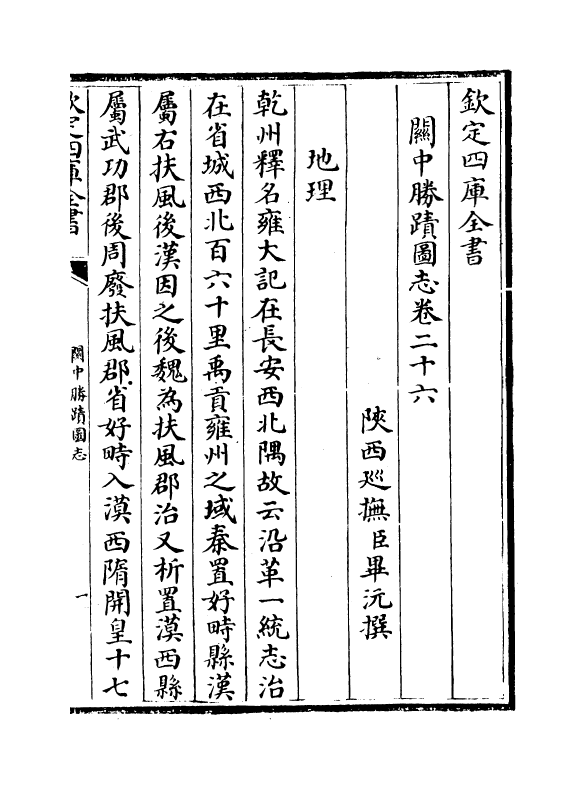 欽定四庫全書
關中勝蹟圖志卷二十六
陜西巡撫臣畢沅撰
地理
乾州釋名雍大記在長安西北隅故云沿革一統志治
在省城西北百六十里禹貢雍州之域秦置好畤縣漢
屬右扶風後漢因之後魏為扶風郡治又析置漠西縣
屬武功郡後周廢扶風郡省好畤入漠西隋開皇十七
欽定四庫全書
關中勝蹟圖志
一